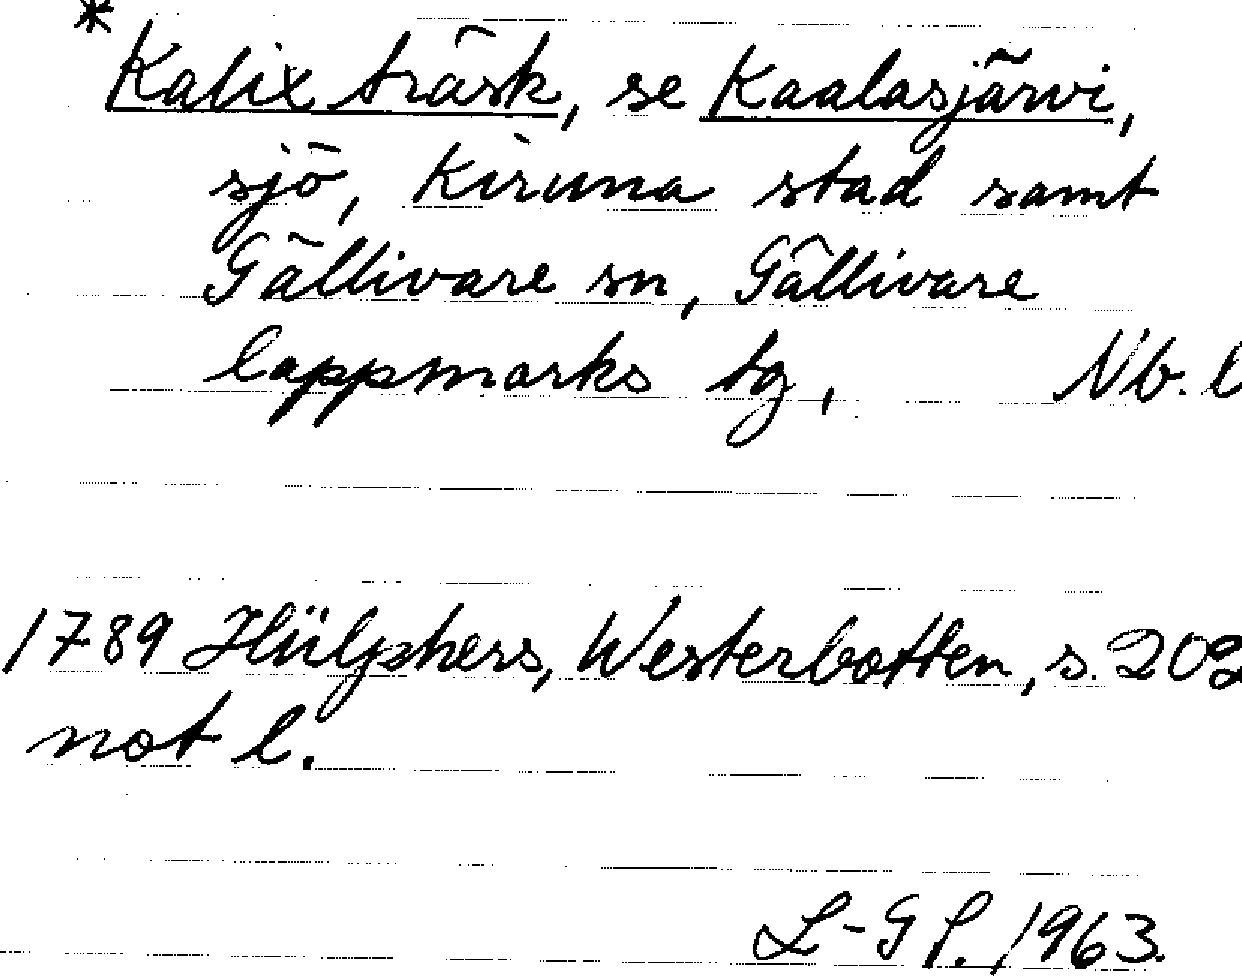 * Kalix träsk, se Kaalasjärvi,
sjö, Kiruna stad samt
Gällivare sn, Gällivare
lappmarks tg, Nb. l
1789 Hülphers, Westerbotten, s. 202
not l.
L-G P. 1963.